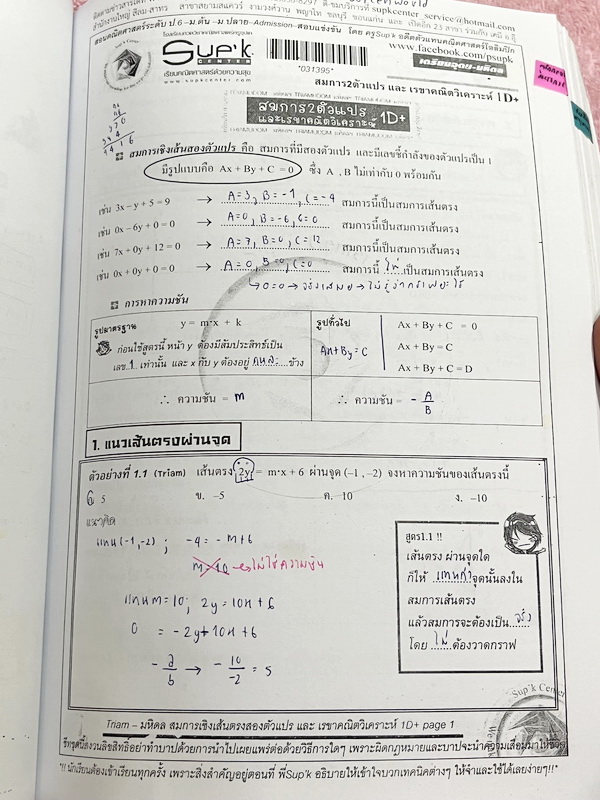 สำนักงานใหญ่ สีลม-สาทร
supkcenter_service@hotmail.com
สอนคณิตศาสตร์ระดับ ป.6 –ม.ต้น –ม.ปลาย–Admission–สอบแข่งขัน โดย ครูSup'k อดีตตัวแทนคณิตศาสตร์โอลิมปิก
www.facebook.com/psupk
Sup'k
CENTER
เรียนคณิตศาสตร์ด้วยความสุข
www.supkcenter.com
*031395*
เตรียมอุดม-มหิดล
สมการ2ตัวแปร และ เรขาคณิตวิเคราะห์ 1D+
สมการ2ตัวแปร
และเรขาคณิตวิเคราะห์ 1D+
สมการเชิงเส้นสองตัวแปร คือ สมการที่มีสองตัวแปร และมีเลขชี้กำลังของตัวแปรเป็น 1
มีรูปแบบคือ Ax + By + C = 0 ซึ่ง A , B ไม่เท่ากับ 0 พร้อมกัน
เช่น 3x – y + 5 = 9 → A=3, B=-1, C=-4 สมการนี้เป็นสมการเส้นตรง
เช่น 0x – 6y + 0 = 0 → A=0, B=-6, C=0 สมการนี้เป็นสมการเส้นตรง
เช่น 7x + 0y + 12 = 0 → A=7, B=0, C=12 สมการนี้เป็นสมการเส้นตรง
เช่น 0x + 0y + 0 = 0 → A=0, B=0, C=0 สมการนี้ ไม่ เป็นสมการเส้นตรง
การหาความชัน
รูปมาตรฐาน y = m·x + k
ก่อนใช้สูตรนี้ หน้า y ต้องมีสัมประสิทธิ์เป็น
เลข 1 เท่านั้น และ x กับ y ต้องอยู่ คนละ ข้าง
∴ ความชัน = m
รูปทั่วไป Ax + By + C = 0
Ax+By=C Ax + By = C
Ax + By + C = D
∴ ความชัน = - A/B
1. แนวเส้นตรงผ่านจุด
ตัวอย่างที่ 1.1 (Triam) เส้นตรง 2y = m·x + 6 ผ่านจุด (–1 , –2) จงหาความชันของเส้นตรงนี้
ก. 5 ข. –5 ค. 10 ง. –10
แนวคิด
แทน (-1,-2) ; -4 = -m+6
m=10 → ไม่ใช่ความชัน
แทน m=10 ; 2y = 10x + 6
0 = -2y+10x+6
- a/b → - 10/-2 = 5
สูตร1.1 !!
เส้นตรง ผ่านจุดใด
ก็ให้ แทนค่า จุดนั้นลงใน
สมการเส้นตรง
แล้วสมการจะต้องเป็น จริง
โดย ไม่ ต้องวาดกราฟ
Sup'k Center
Triam – มหิดล สมการเชิงเส้นตรงสองตัวแปร และ เรขาคณิตวิเคราะห์ 1D+ page 1
ชีทชุดนี้สงวนลิขสิทธิ์อย่าทำบาปด้วยการนำไปเผยแพร่ต่อด้วยวิธีการใดๆ เพราะผิดกฎหมายและบาปจะนำความเสื่อมมาให้ชีวิต
"!! นักเรียนต้องเข้าเรียนทุกครั้ง เพราะสิ่งสำคัญอยู่ตอนที่ พี่Sup'k อธิบายให้เข้าใจบวกเทคนิคต่างๆ ให้จำและใช้ได้เลยง่ายๆ!!"